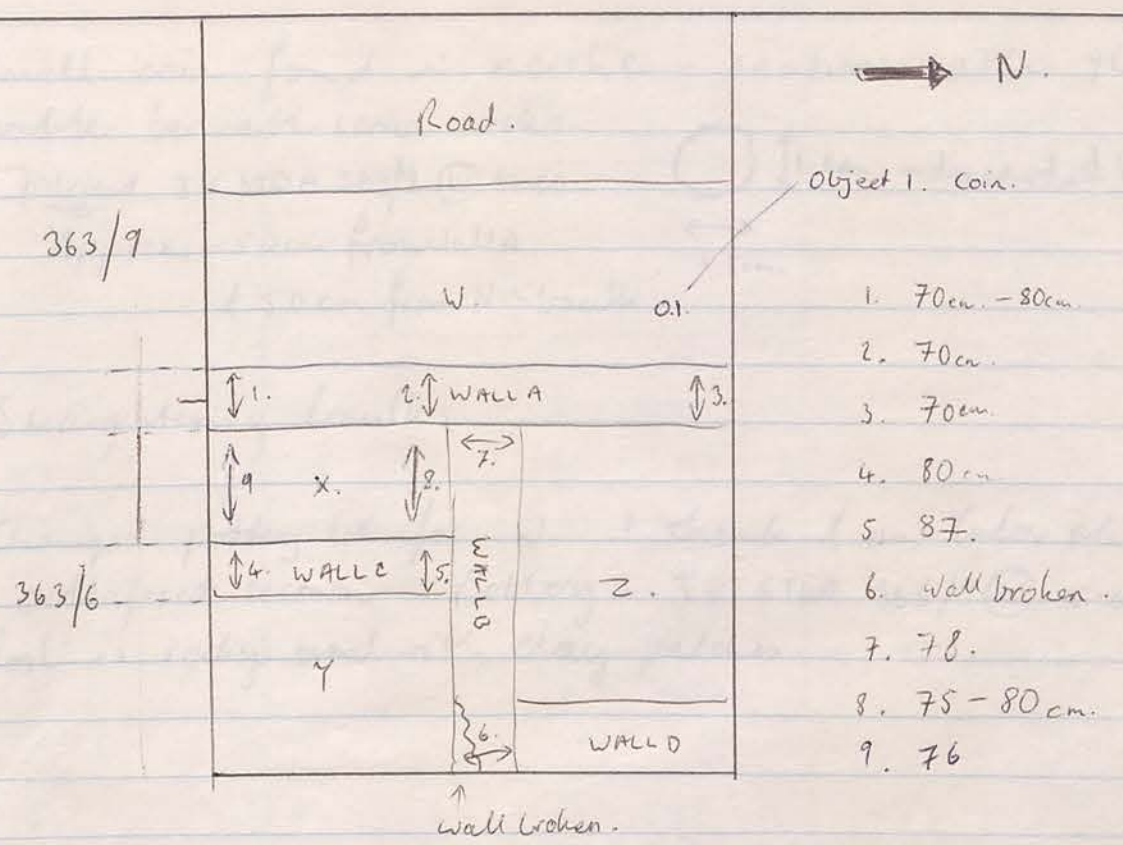 N.
Road.
Object 1. Coin.
363/9
W
O.1.
1.
2.
WALL A
3.
7.
9
X.
8.
4.
WALL C
5.
WALL B
363/6
Z.
Y
6.
WALL D
Wall broken.
1. 70cm. - 80cm.
2. 70cm.
3. 70cm.
4. 80cm
5. 87.
6. Wall broken.
7. 78.
8. 75 - 80 cm.
9. 76